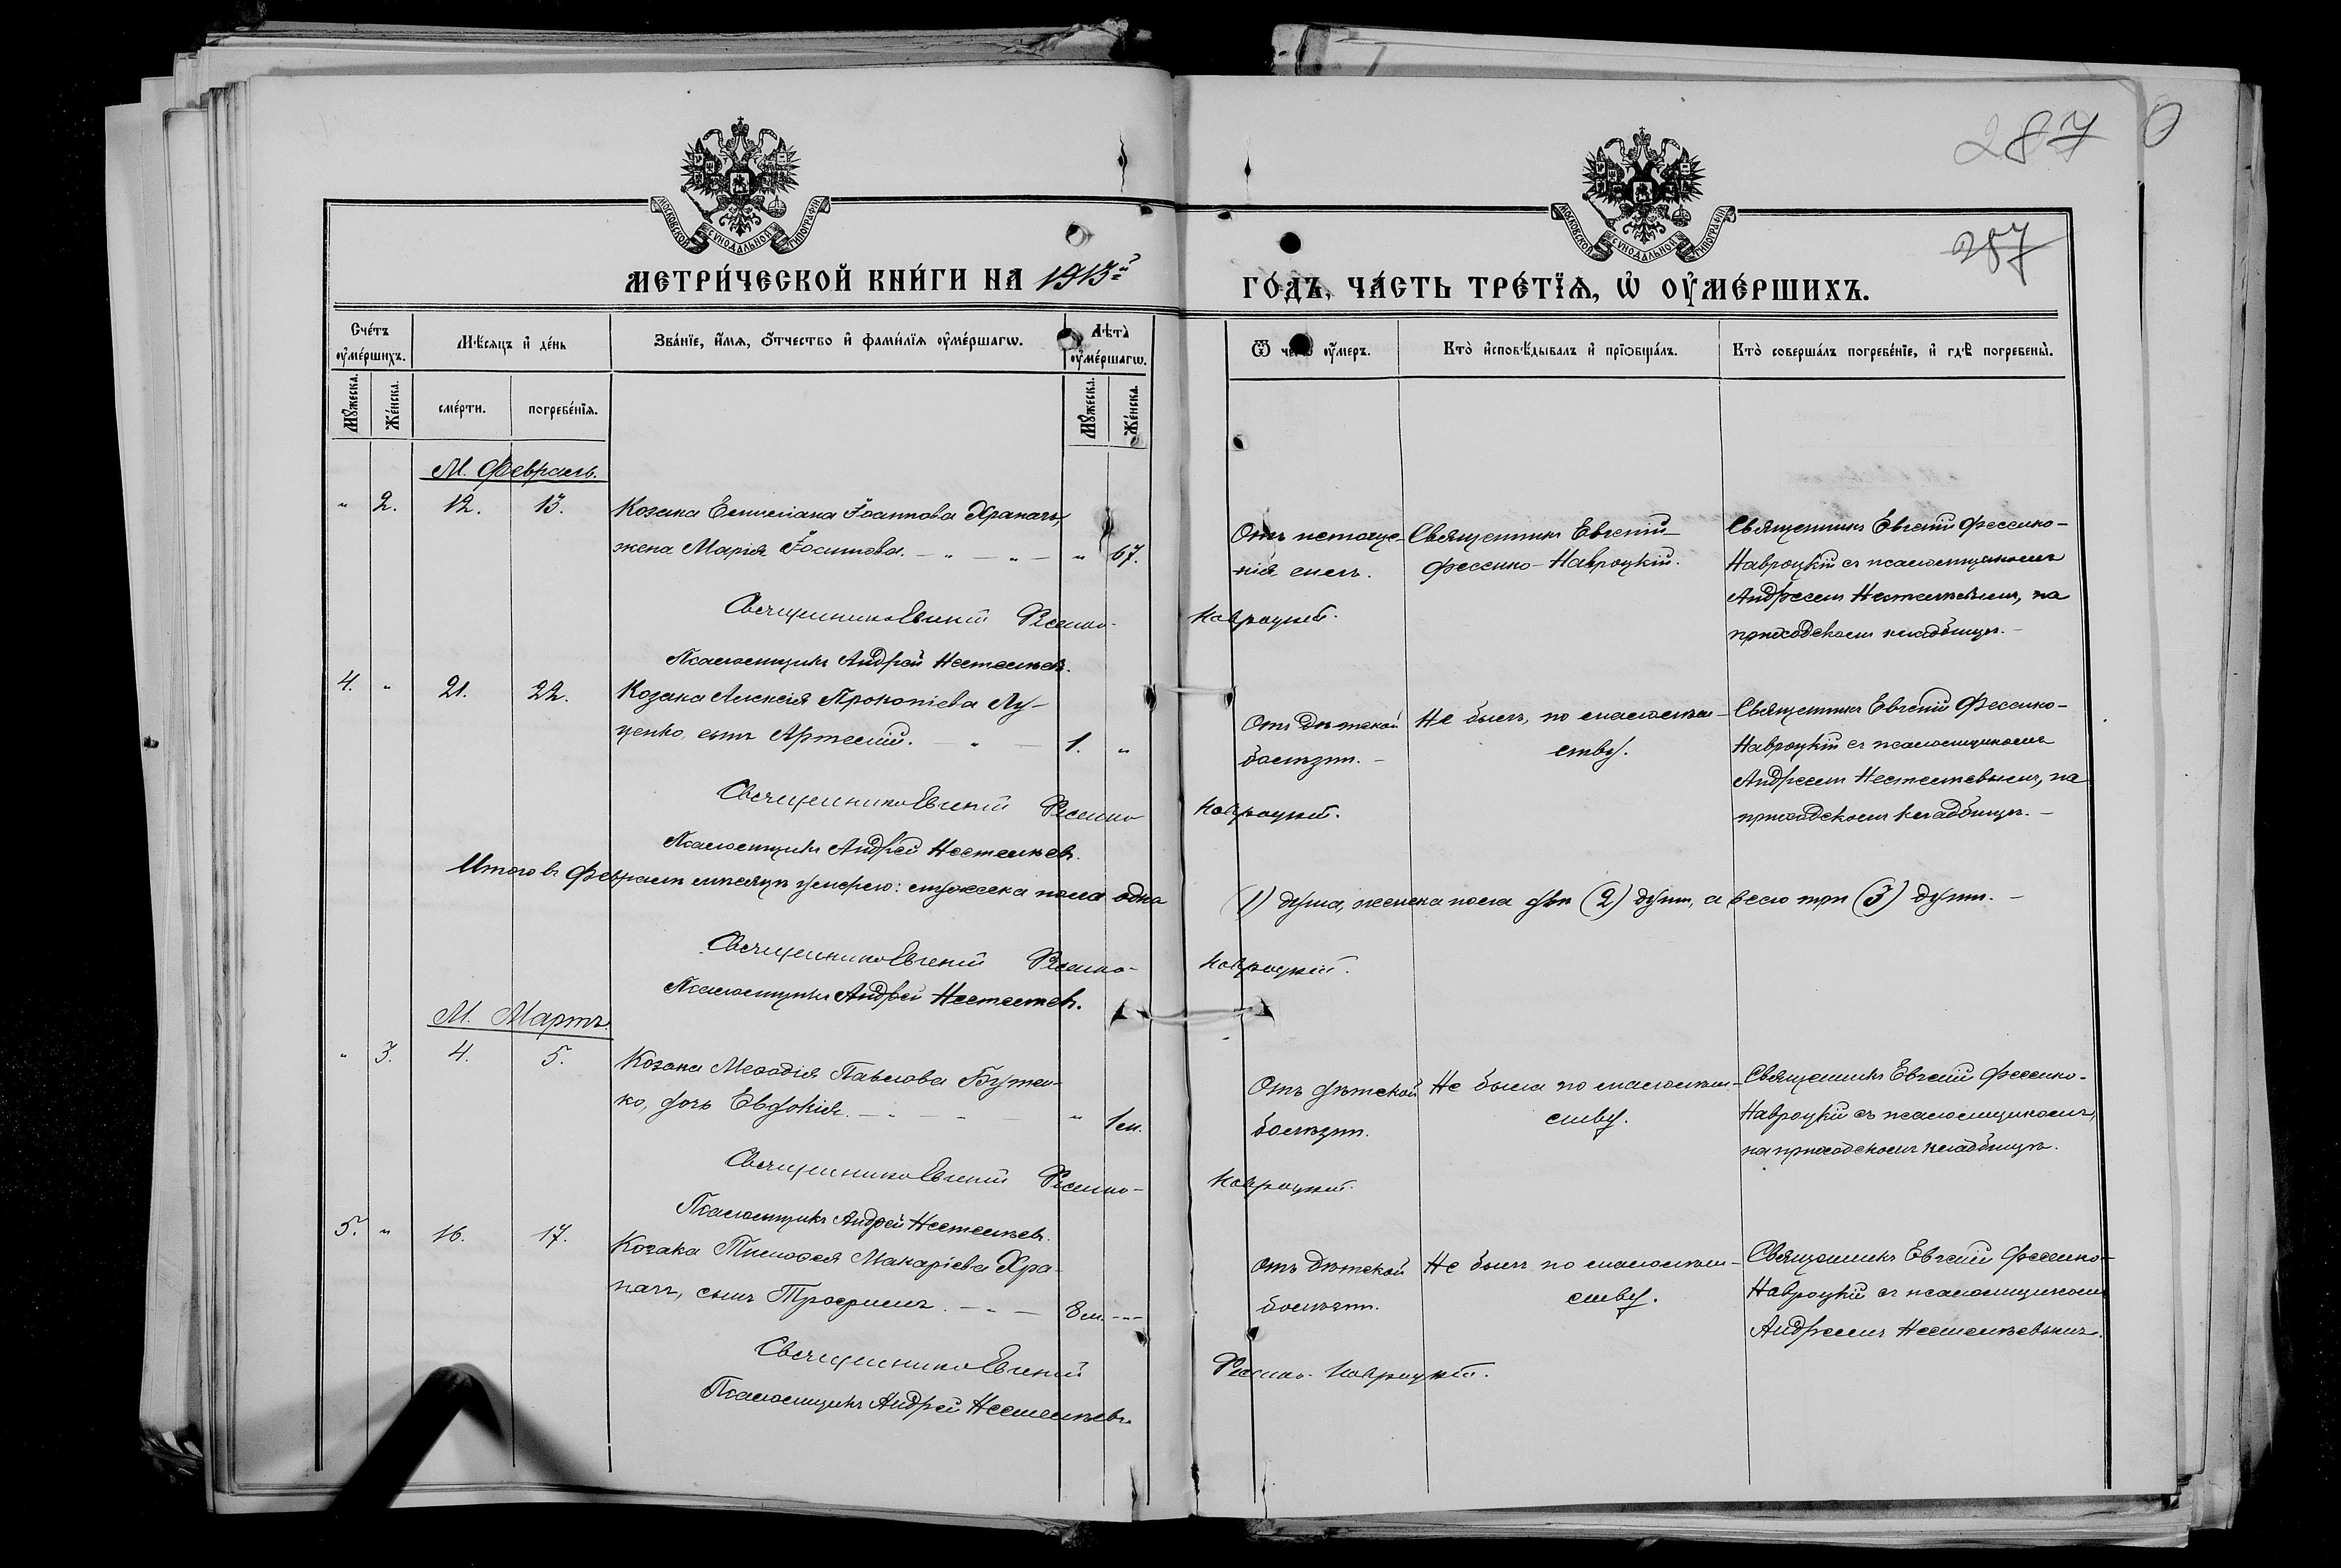 287
287
МОСКОВСКОЙ СѴНОДАЛЬНОЙ ТИПОГРАФІИ
МОСКОВСКОЙ СѴНОДАЛЬНОЙ ТИПОГРАФІИ
МЕТРИ́ЧЕСКОЙ КНИ́ГИ НА 1913й
ГО́ДЪ, ЧА́СТЬ ТРЕ́ТЇѦ, Ѡ҆ ОУ҆МЕ́РШИХЪ.
Сче́тъ оу҆ме́ршихъ.
Мѣ́сѧцъ и҆ де́нь
Зва́нїе, и҆́мѧ, ѻ҆́тчество и҆ фами́лїѧ оу҆ме́ршагѡ.
Лѣ́та̀ оу҆ме́ршагѡ.
Ѿ чегѡ̀ оу҆́меръ.
Кто̀ и҆сповѣ́дывалъ и҆ прїѡбща́лъ.
Кто̀ соверша́лъ погребе́нїе, и҆ гдѣ̀ погребены̀.
Мꙋ́жеска.
Же́нска.
сме́рти.
погребе́нїѧ.
Мꙋ́жеска.
Же́нска.
М. Февраль.
" 2. 12. 13. Козака Емиліана Іоаннова Храпачъ,
жена Марія Іосифова. — " — " — " 67.
Отъ истоще-
нія силъ.
Священникъ Евгеній
Фесенко-Навроцкій.
Священникъ Евгеній Фесенко-
Навроцкій съ псаломщикомъ
Андреемъ , на
приходскомъ кладбищѣ. —
Священникъ Евгеній Фесенко-
Навроцкій.
Псаломщикъ Андрей
4. " 21. 22. Козака Алексія Прокопіева Лу-
ценко, сынъ Артемій. — " — 1. "
Отъ дѣтской
болѣзни. —
Не былъ, по малолѣт-
ству.
Священникъ Евгеній Фесенко-
Навроцкій съ псаломщикомъ
Андреемъ , на
приходскомъ кладбищѣ. —
Священникъ Евгеній Фесенко
Навроцкій.
Псаломщикъ Андрей
Итого въ Февралѣ мѣсяцѣ умерло: мужеска пола одна
(1) душа, женска пола двѣ (2) души, а всего три (3) души. —
Священникъ Евгеній Фесенко-
Навроцкій.
Псаломщикъ Андрей
М. Мартъ.
" 3. 4. 5. Козака Меѳодія Павлова Бутен-
ко, дочь Евдокія. — " — — " 1 м.
Отъ дѣтской
болѣзни.
Не была по малолѣт-
ству.
Священникъ Евгеній Фесенко-
Навроцкій съ псаломщикомъ,
на приходскомъ кладбищѣ.
Священникъ Евгеній Фесенко-
Навроцкій.
Псаломщикъ Андрей
5. " 16. 17. Козака Тимоѳея Макаріева Хра-
пачъ, сынъ Трофимъ. — " — 8 м. — " —
Отъ дѣтской
болѣзни.
Не былъ по малолѣт-
ству.
Священникъ Евгеній Фесенко-
Навроцкій съ псаломщикомъ
Андреемъ
Священникъ Евгеній
Фесенко-Навроцкій.
Псаломщикъ Андрей